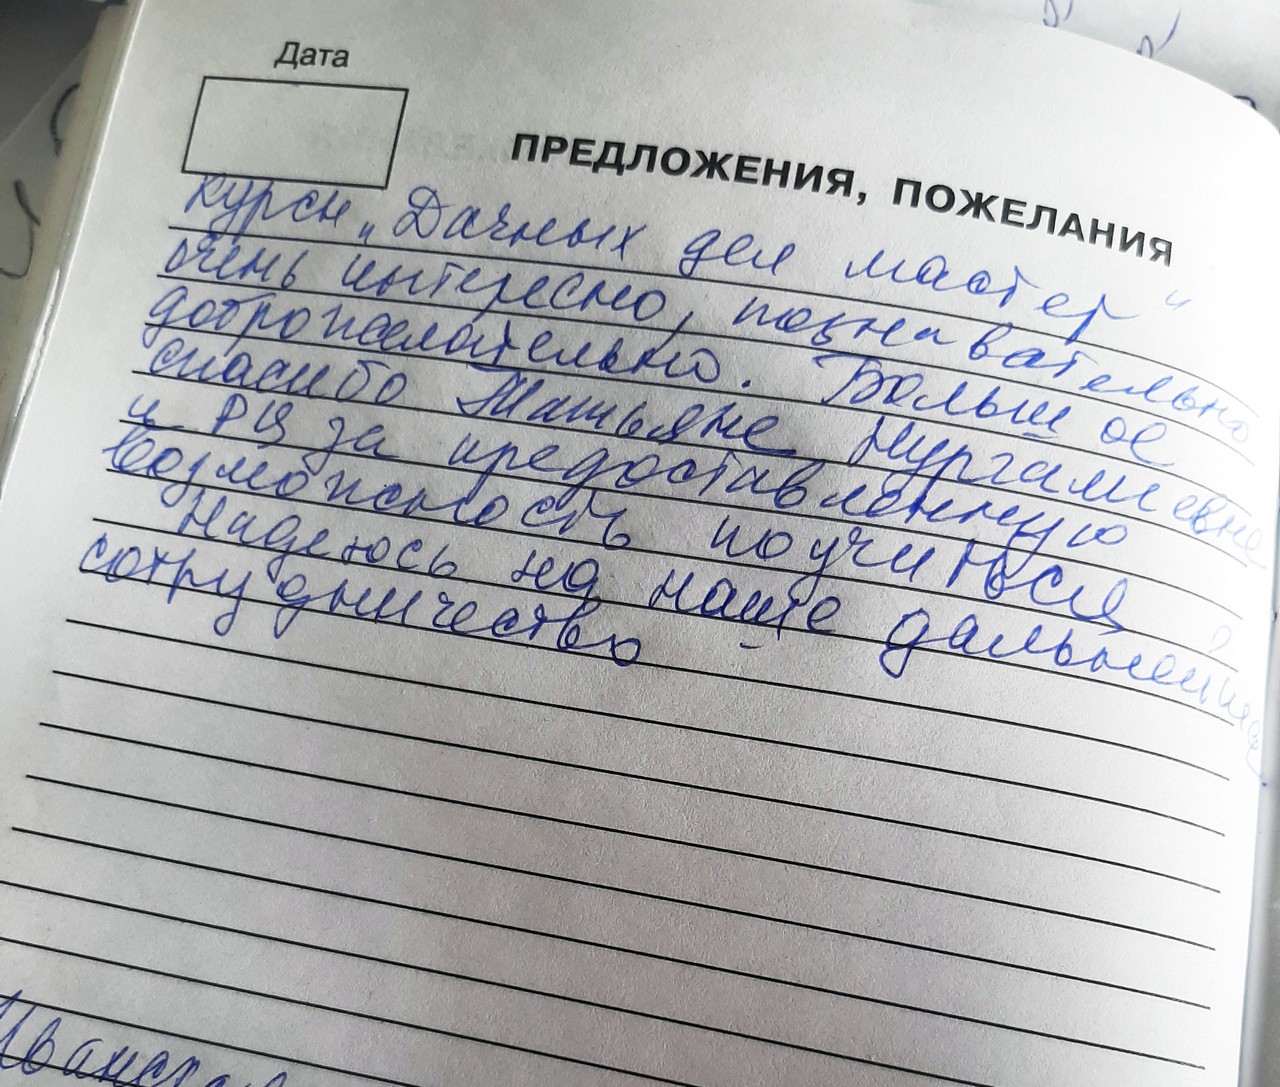 Дата
ПРЕДЛОЖЕНИЯ, ПОЖЕЛАНИЯ
Курсы „Дачных дел мастер"
очень интересно, познавательно
доброжелательно. Большое
спасибо Татьяне Нургалиевне
и РЦ за предоставленную
возможность поучиться
Надеюсь на наше дальнейшее
сотрудничество